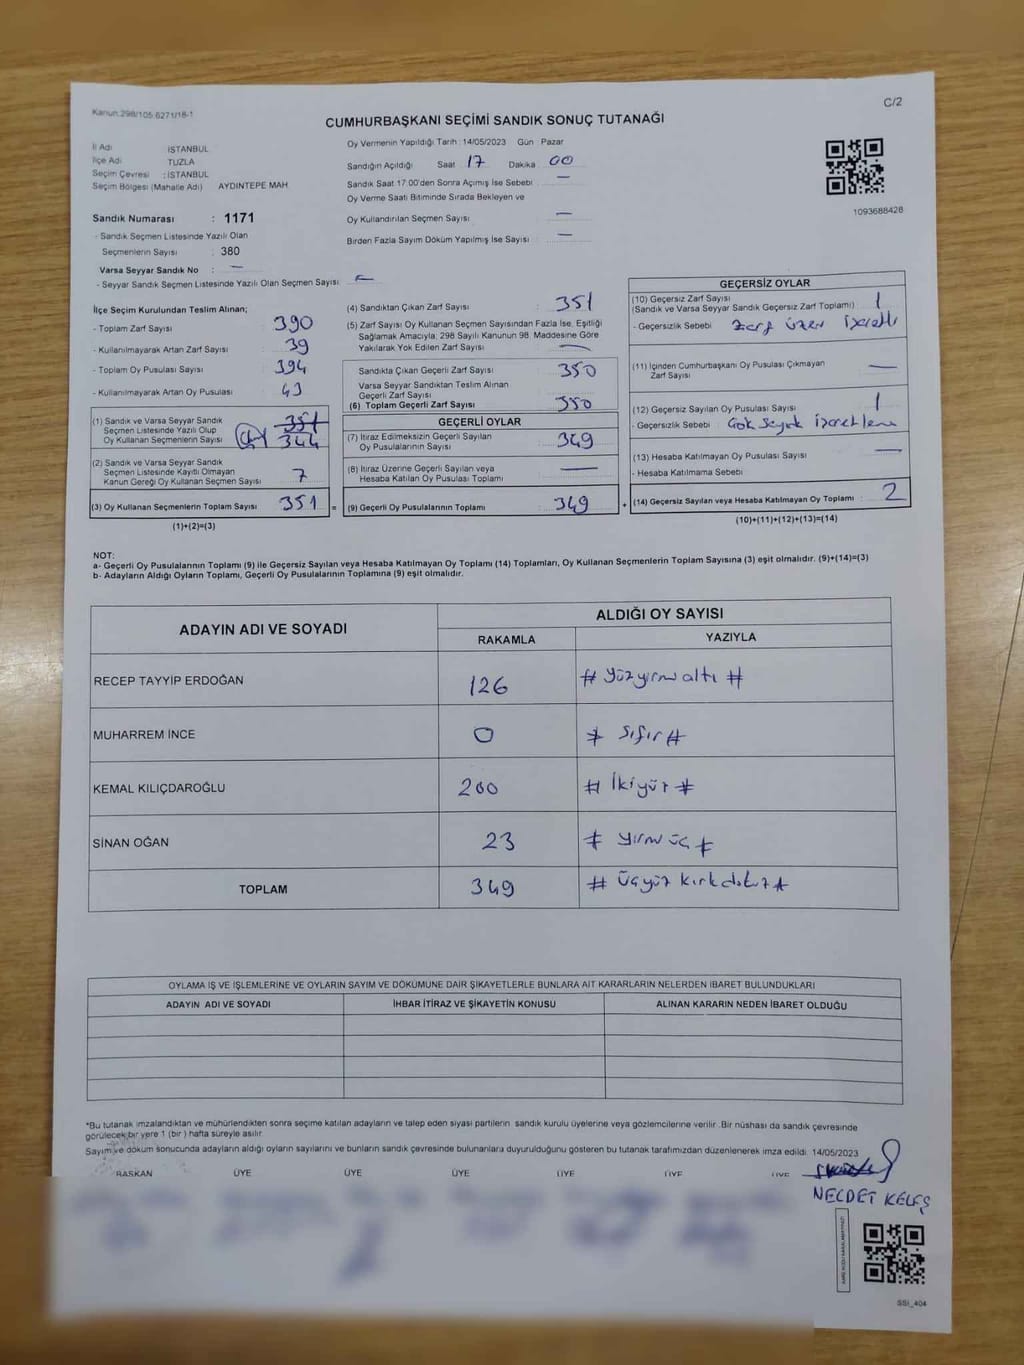 Kanun:298/105.6271/18-1
C/2
CUMHURBAŞKANI SEÇİMİ SANDIK SONUÇ TUTANAĞI
İl Adı İSTANBUL
İlçe Adı TUZLA
Seçim Çevresi : İSTANBUL
Seçim Bölgesi (Mahalle Adı) AYDINTEPE MAH.
Sandık Numarası : 1171
- Sandık Seçmen Listesinde Yazılı Olan
Seçmenlerin Sayısı : 380
Varsa Seyyar Sandık No : —
- Seyyar Sandık Seçmen Listesinde Yazılı Olan Seçmen Sayısı: —
Oy Vermenin Yapıldığı Tarih : 14/05/2023 Gün Pazar
Sandığın Açıldığı Saat 17 Dakika 00
Sandık Saat 17:00'den Sonra Açılmış İse Sebebi : —
Oy Verme Saati Bitiminde Sırada Bekleyen ve
Oy Kullandırılan Seçmen Sayısı : —
Birden Fazla Sayım Döküm Yapılmış İse Sayısı : —
1093688428
İlçe Seçim Kurulundan Teslim Alınan;
- Toplam Zarf Sayısı : 390
- Kullanılmayarak Artan Zarf Sayısı : 39
- Toplam Oy Pusulası Sayısı : 394
- Kullanılmayarak Artan Oy Pusulası : 43
(1) Sandık ve Varsa Seyyar Sandık
Seçmen Listesinde Yazılı Olup
Oy Kullanan Seçmenlerin Sayısı 351 344
(2) Sandık ve Varsa Seyyar Sandık
Seçmen Listesinde Kayıtlı Olmayan
Kanun Gereği Oy Kullanan Seçmen Sayısı : 7
(3) Oy Kullanan Seçmenlerin Toplam Sayısı : 351
(1)+(2)=(3)
(4) Sandıktan Çıkan Zarf Sayısı : 351
(5) Zarf Sayısı Oy Kullanan Seçmen Sayısından Fazla İse, Eşitliği
Sağlamak Amacıyla, 298 Sayılı Kanunun 98. Maddesine Göre
Yakılarak Yok Edilen Zarf Sayısı : —
Sandıkta Çıkan Geçerli Zarf Sayısı : 350
Varsa Seyyar Sandıktan Teslim Alınan
Geçerli Zarf Sayısı :
(6) Toplam Geçerli Zarf Sayısı : 350
GEÇERLİ OYLAR
(7) İtiraz Edilmeksizin Geçerli Sayılan
Oy Pusulasının Sayısı : 349
(8) İtiraz Üzerine Geçerli Sayılan veya
Hesaba Katılan Oy Pusulası Toplamı : —
= (9) Geçerli Oy Pusulalarının Toplamı : 349
GEÇERSİZ OYLAR
(10) Geçersiz Zarf Sayısı
(Sandık ve Varsa Seyyar Sandık Geçersiz Zarf Toplamı) : 1
- Geçersizlik Sebebi : zarf üzeri işaretli
(11) İçinden Cumhurbaşkanı Oy Pusulası Çıkmayan
Zarf Sayısı : —
(12) Geçersiz Sayılan Oy Pusulası Sayısı : 1
- Geçersizlik Sebebi :
(13) Hesaba Katılmayan Oy Pusulası Sayısı : —
- Hesaba Katılmama Sebebi
+ (14) Geçersiz Sayılan veya Hesaba Katılmayan Oy Toplamı : 2
(10)+(11)+(12)+(13)=(14)
NOT:
a- Geçerli Oy Pusulalarının Toplamı (9) ile Geçersiz Sayılan veya Hesaba Katılmayan Oy Toplamı (14) Toplamları, Oy Kullanan Seçmenlerin Toplam Sayısına (3) eşit olmalıdır. (9)+(14)=(3)
b- Adayların Aldığı Oyların Toplamı, Geçerli Oy Pusulalarının Toplamına (9) eşit olmalıdır.
ADAYIN ADI VE SOYADI ALDIĞI OY SAYISI
RAKAMLA YAZIYLA
RECEP TAYYİP ERDOĞAN 126 # Yüzyirmi altı #
MUHARREM İNCE 0 # Sıfır #
KEMAL KILIÇDAROĞLU 200 # İkiyüz #
SİNAN OĞAN 23 # yirmi üç #
TOPLAM 349 # Üçyüz kırkdokuz #
OYLAMA İŞ VE İŞLEMLERİNE VE OYLARIN SAYIM VE DÖKÜMÜNE DAİR ŞİKAYETLERLE BUNLARA AİT KARARLARIN NELERDEN İBARET BULUNDUKLARI
ADAYIN ADI VE SOYADI İHBAR İTİRAZ VE ŞİKAYETİN KONUSU ALINAN KARARIN NEDEN İBARET OLDUĞU
*Bu tutanak imzalandıktan ve mühürlendikten sonra seçime katılan adayların ve talep eden siyasi partilerin sandık kurulu üyelerine veya gözlemcilerine verilir. Bir nüshası da sandık çevresinde
görülecek bir yere 1 (bir) hafta süreyle asılır.
Sayım ve döküm sonucunda adayların aldığı oyların sayılarını ve bunların sandık çevresinde bulunanlara duyurulduğunu gösteren bu tutanak tarafımızdan düzenlenerek imza edildi. 14/05/2023
BAŞKAN ÜYE ÜYE ÜYE ÜYE ÜYE ÜYE
NECDET KELEŞ
SSİ_404